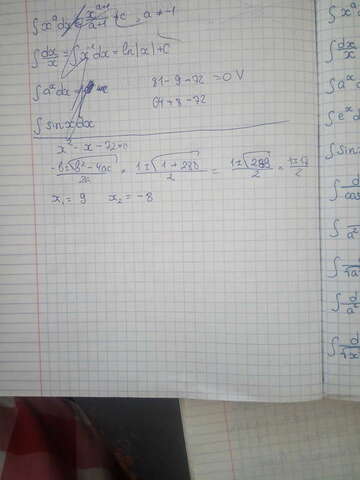 ∫x^a dx = x^(a+1)/(a+1) + C, a ≠ -1
∫dx/x = ∫x^-1 dx = ln|x| + C
∫a^x dx =
81-9-72 = 0 V
64+8-72
∫sin x dx
x² - x - 72 = 0
-b±√(b²-4ac)/2a = 1±√(1+288)/2 = 1±√289/2 = 1±17/2
x₁ = 9 x₂ = -8
∫x^a
∫dx/x
∫a^x
∫e^x d
∫sin x
∫d/cos
∫
∫
∫d/a²
∫d/√x